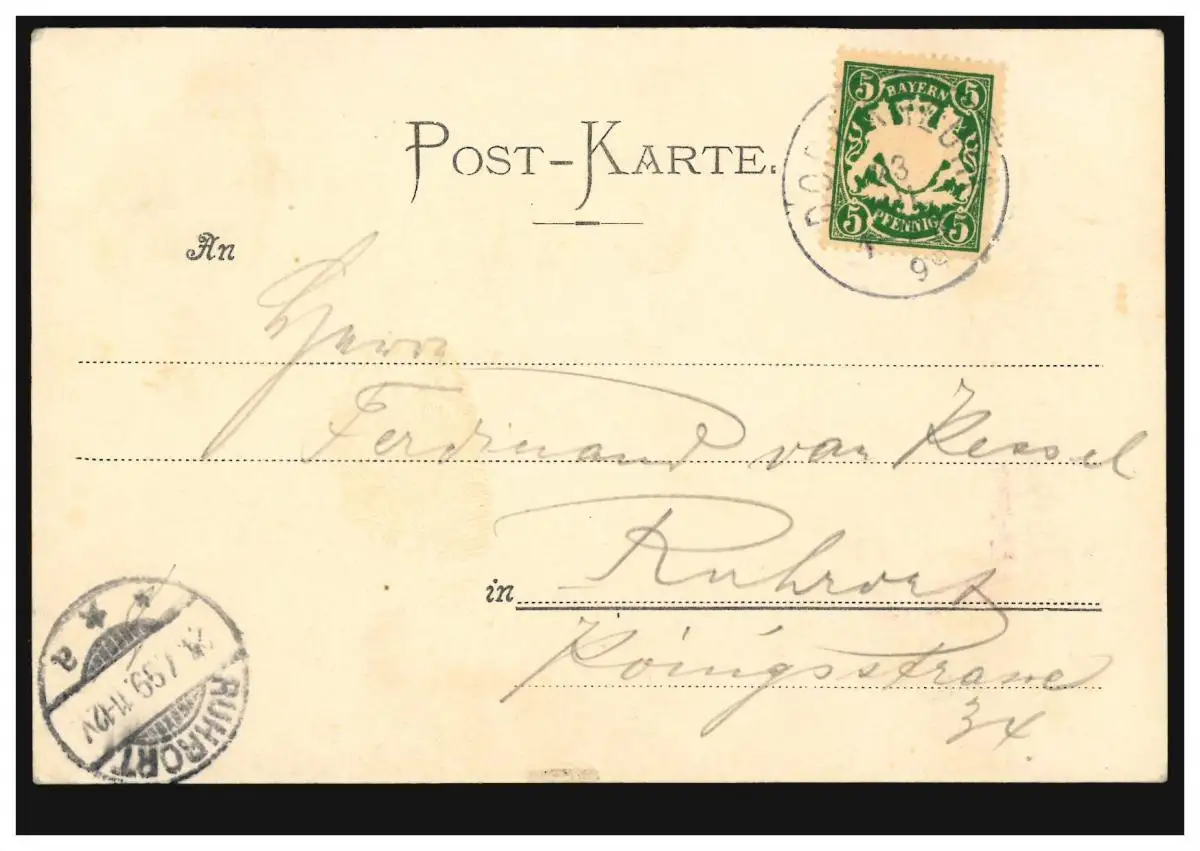 POST-KARTE.
5 BAYERN 5
5 PFENNIG 5
23
99
An
Herrn
Ferdinand van Kessel
in Ruhrort
Königsstrasse
34.
RUHRORT
99. 11-12V
a